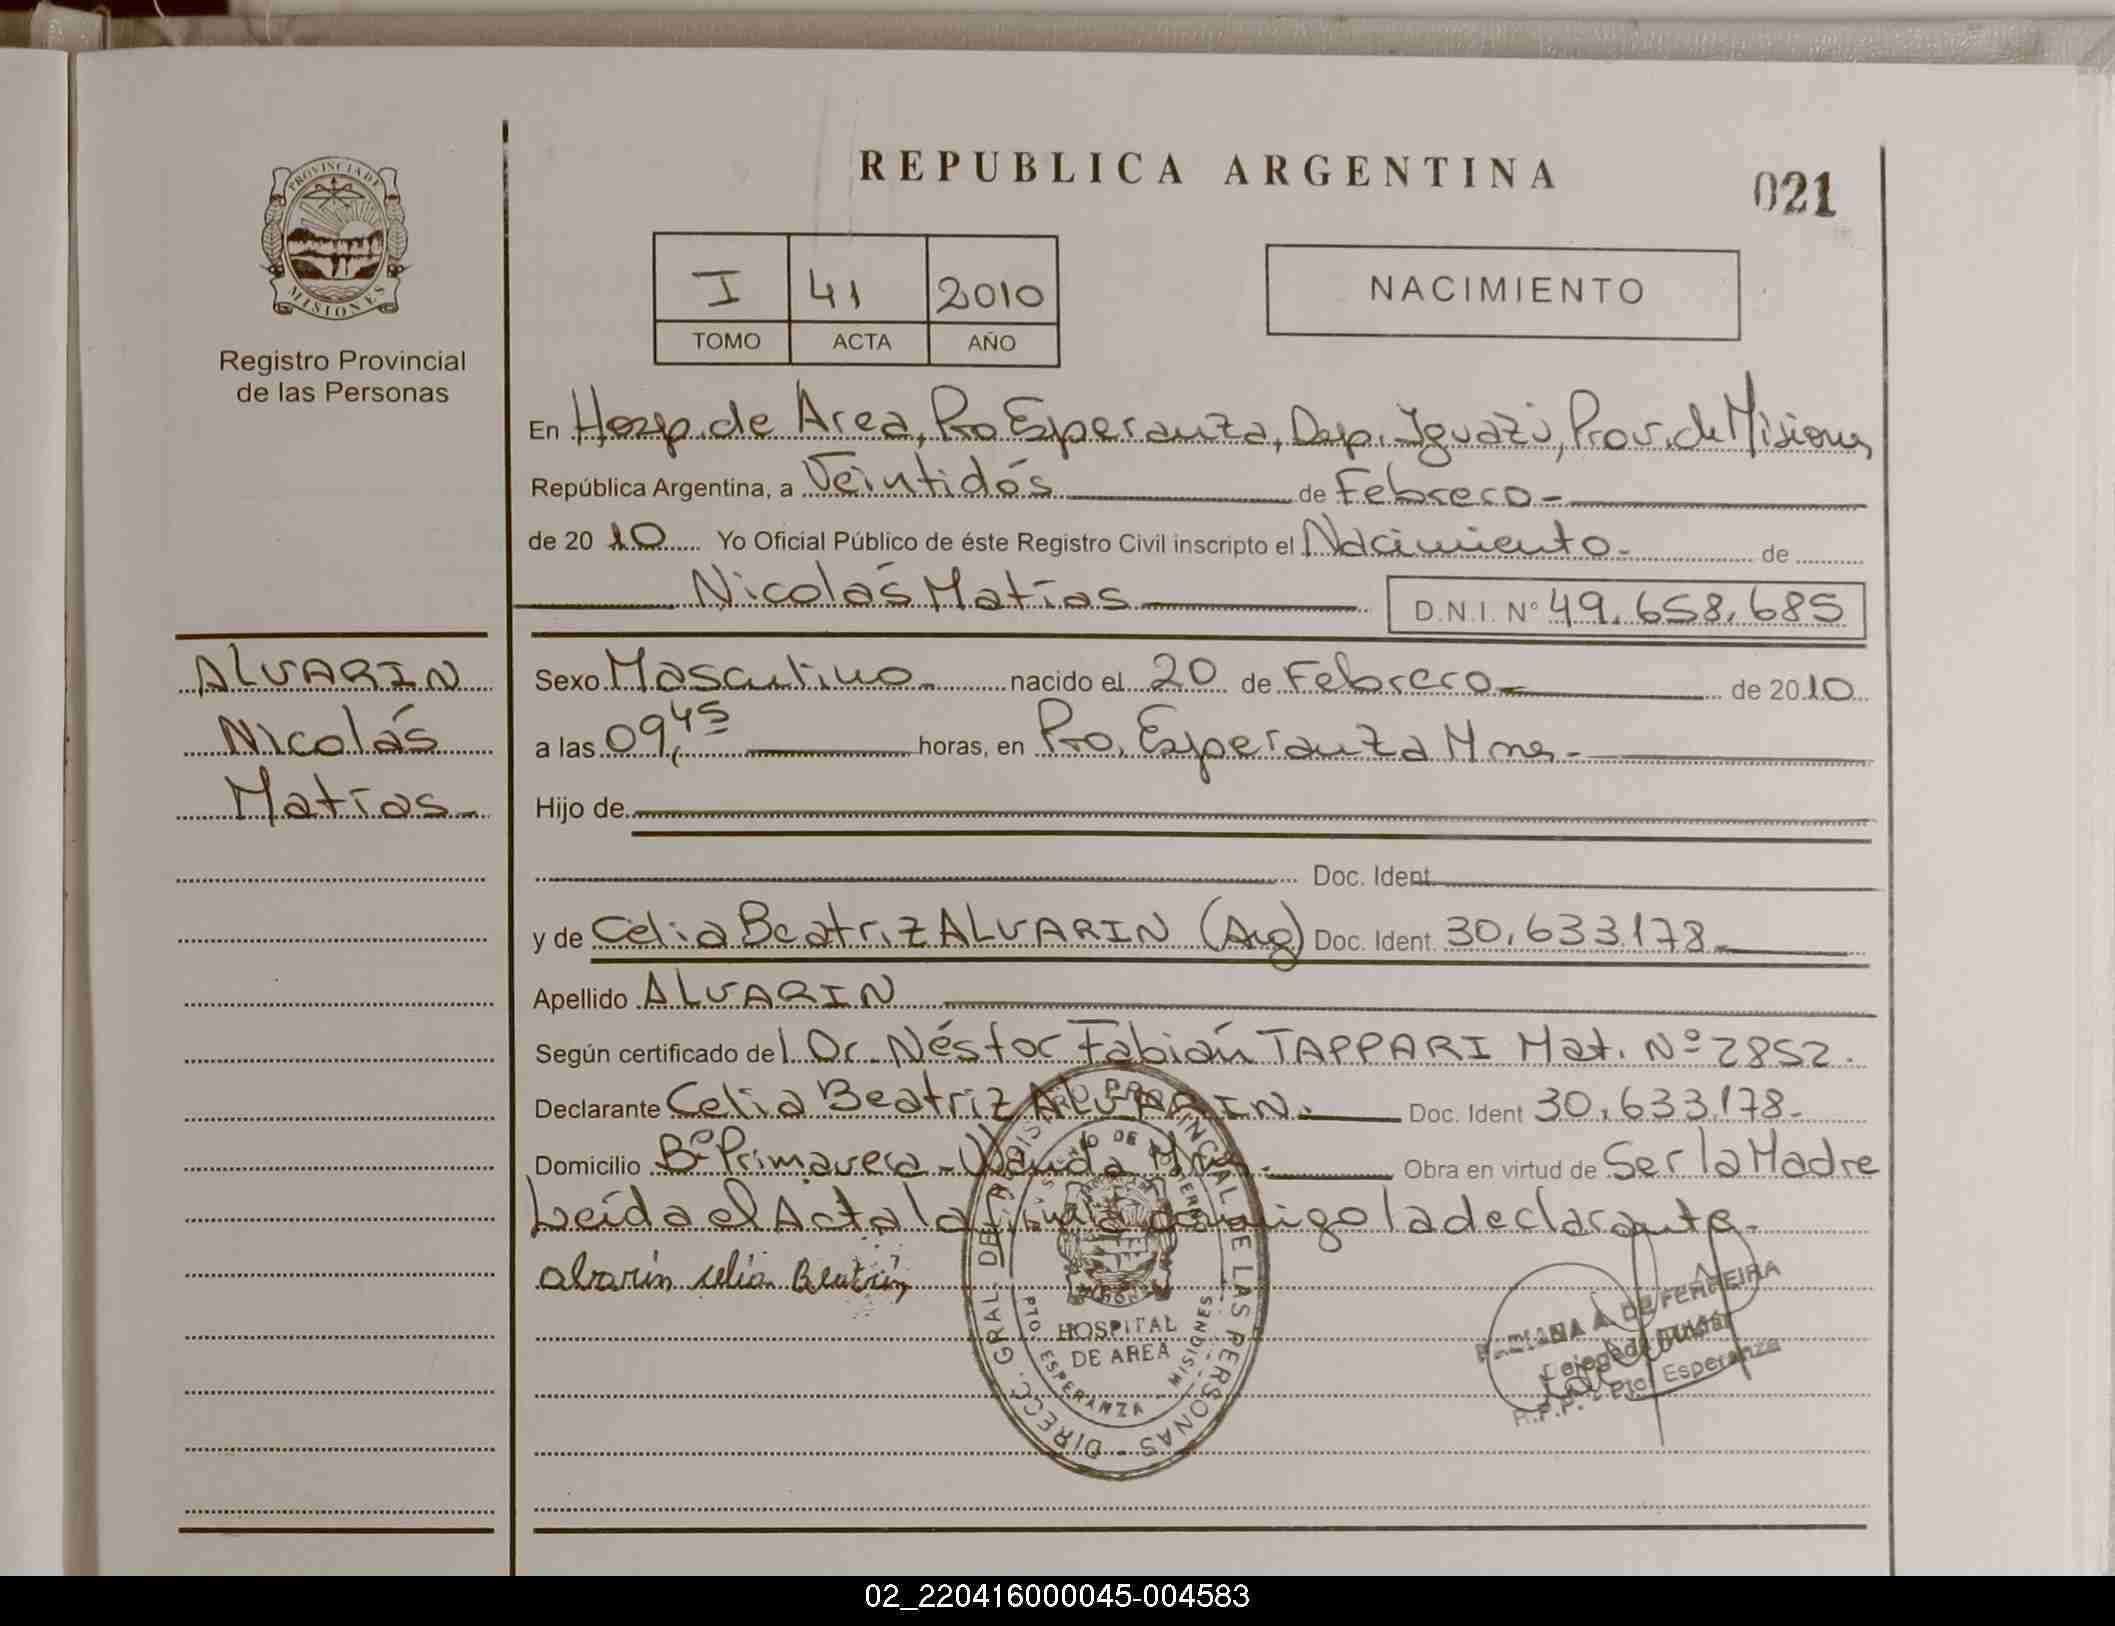 REPUBLICA ARGENTINA
021
PROVINCIA DE
MISIONES
Registro Provincial
de las Personas
I 41 2010
TOMO ACTA AÑO
NACIMIENTO
En Hosp. de Area, Pto Esperanza, Dep. Iguazú, Prov. de Misiones
República Argentina, a Veintidós de Febrero-
de 2010 Yo Oficial Público de éste Registro Civil inscripto el Nacimiento- de
Nicolás Matías D.N.I. Nº 49.658.685
ALVARIN
Nicolás
Matías-
Sexo Masculino- nacido el 20 de Febrero- de 2010
a las 09,45 horas, en Pto. Esperanza Mnes-
Hijo de
Doc. Ident.
y de Celia Beatriz ALVARIN (Arg) Doc. Ident. 30.633.178-
Apellido ALVARIN
Según certificado del Dr. Néstor Fabián TAPPARI Mat. Nº 2852.
Declarante Celia Beatriz ALVARIN. Doc. Ident 30.633.178-
Domicilio Bº Primavera - Wanda Mnes. Obra en virtud de Ser la Madre
Leída el Acta la firma conmigo la declarante.
alvarin celia Beatriz
DIRECC. GRAL. DE REGISTRO PROVINCIAL DE LAS PERSONAS
HOSPITAL
DE AREA
PTO. ESPERANZA - MISIONES
A. DE FERREIRA
Delegada Titular
R.P.P. - Pto. Esperanza
02_220416000045-004583